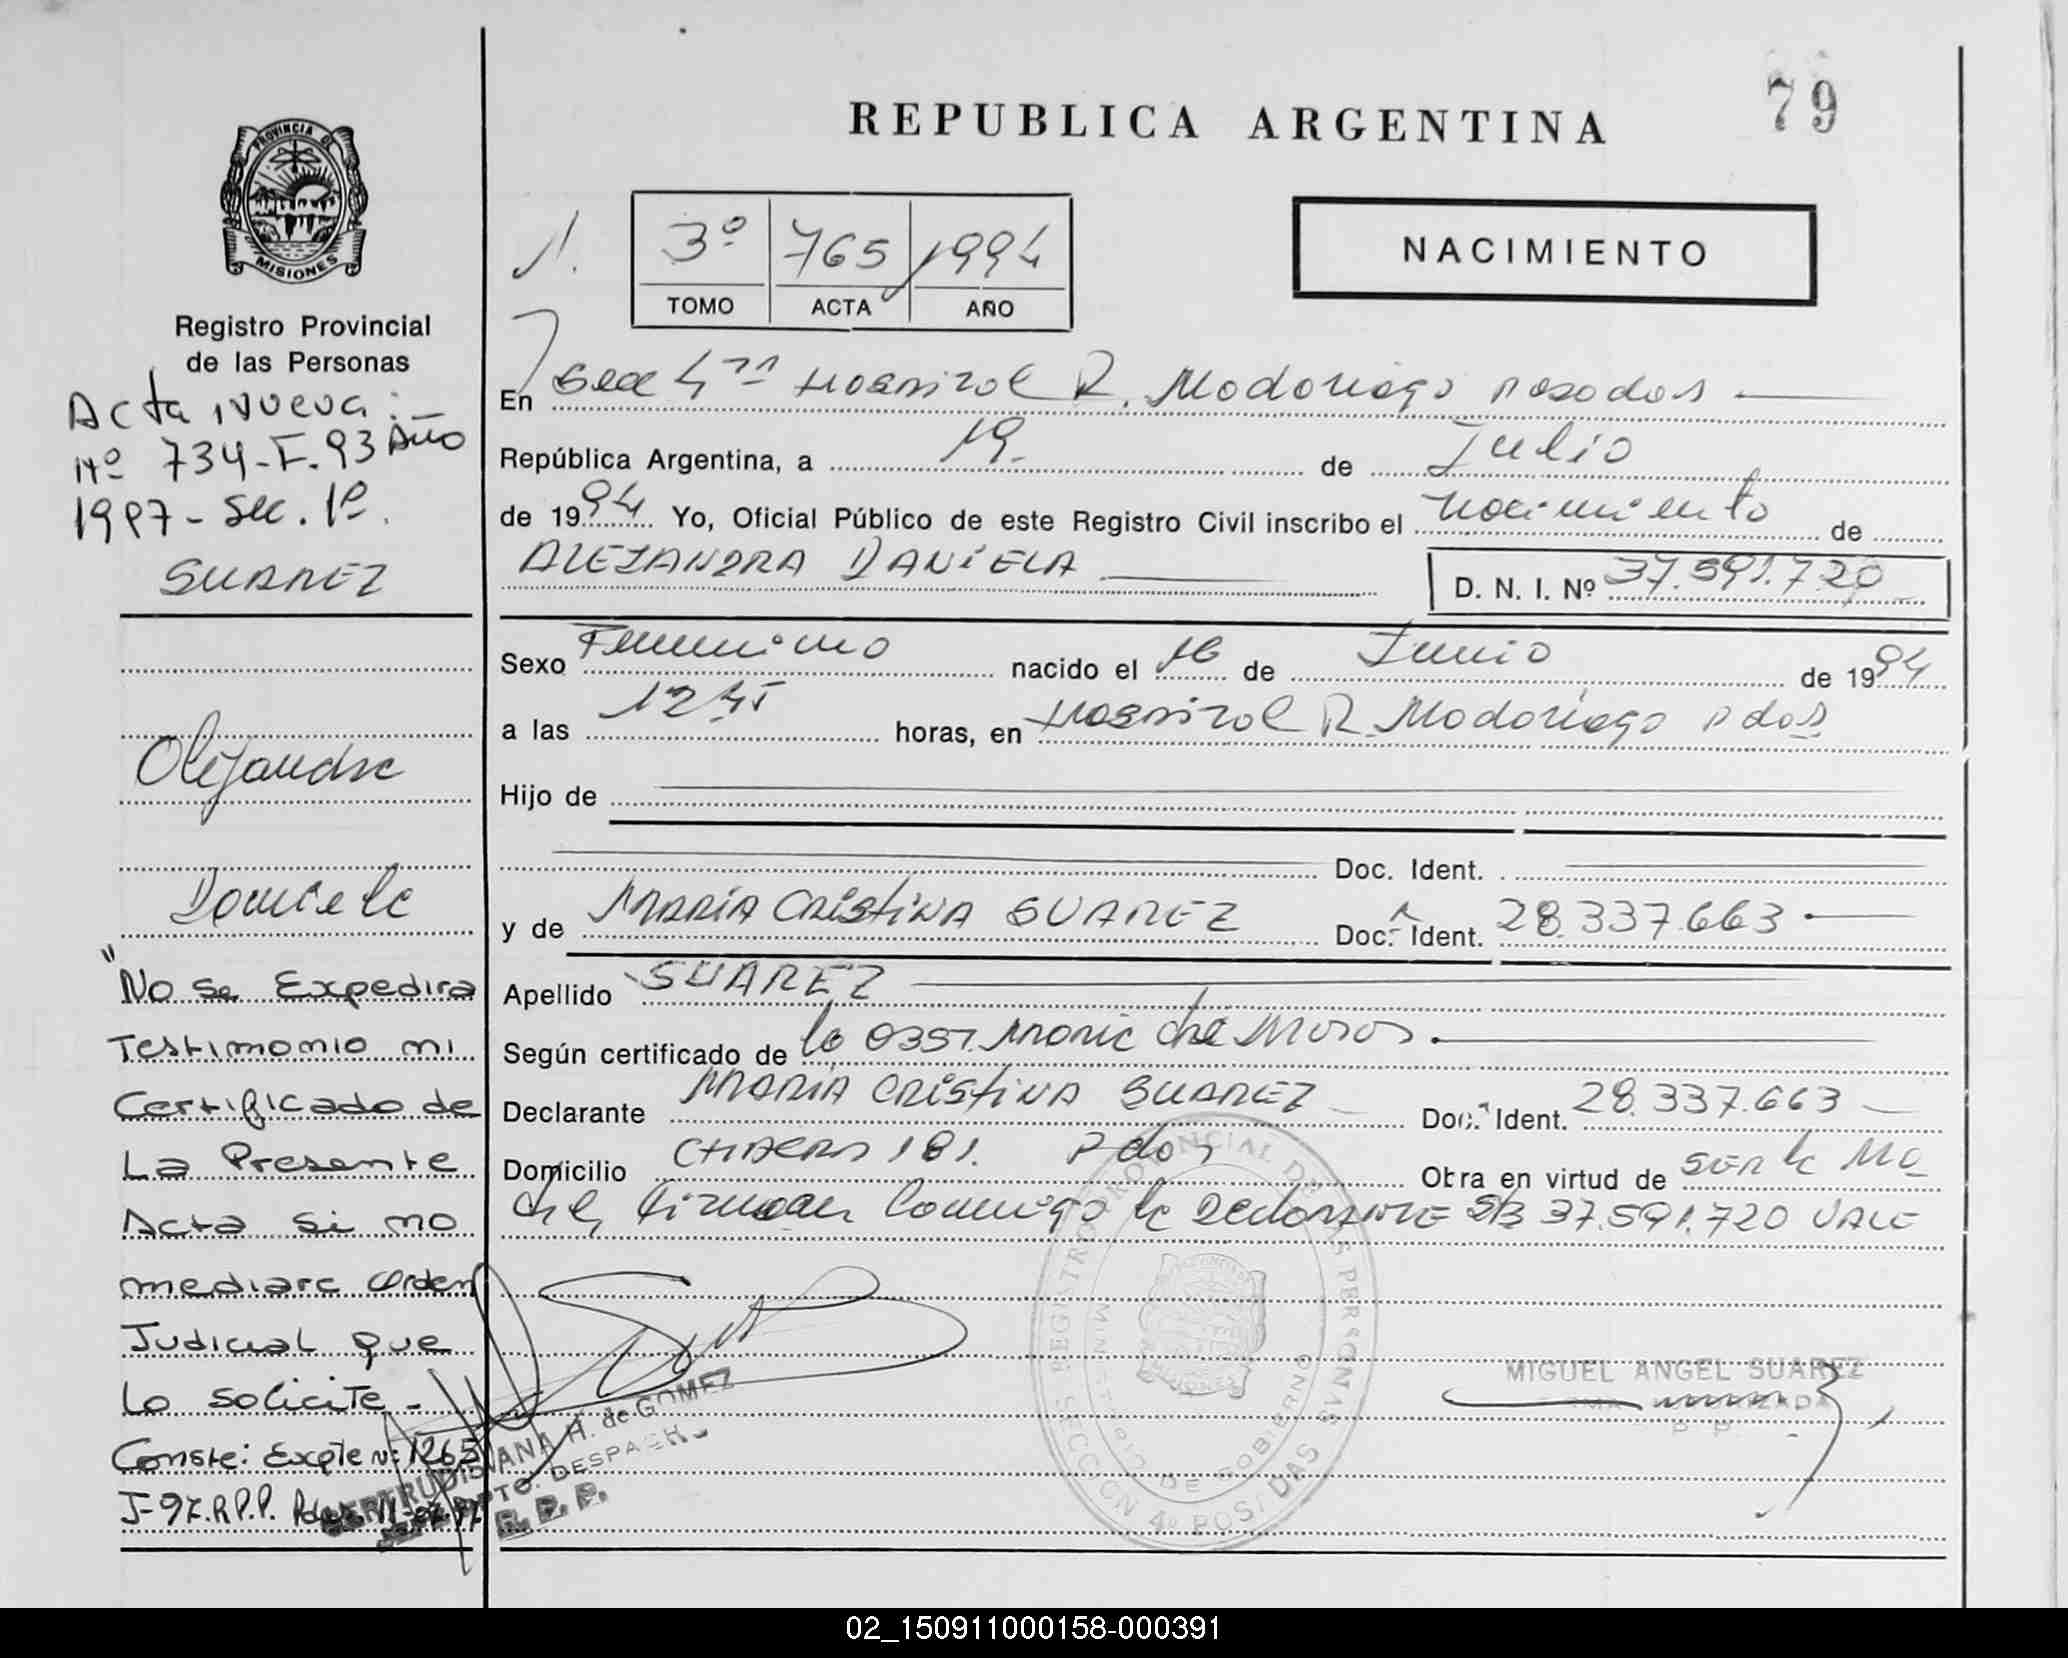 79
REPUBLICA ARGENTINA
PROVINCIA DE
MISIONES
Registro Provincial
de las Personas
3º 765 1994
TOMO ACTA AÑO
NACIMIENTO
Acta Nueva:
Nº 734-F.93 Año
1997 - Sec. 1ª.
SUAREZ
Alejandra
Daniela
"No se Expedira
Testimonio ni
Certificado de
La Presente
Acta si no
mediare orden
Judicial que
lo solicite -
Conste: Expte Nº 1265
J-97.R.P.P.
En Secc 4ta Hospital R. Madariaga Posadas
República Argentina, a 19 de Julio
de 1994 Yo, Oficial Público de este Registro Civil inscribo el nacimiento de
ALEJANDRA DANIELA D. N. I. Nº 37.591.720
Sexo Femenino nacido el 16 de Junio de 1994
a las 12 45 horas, en Hospital R. Madariaga Pdas
Hijo de
Doc. Ident.
y de MARIA CRISTINA SUAREZ Doc. Ident. 28.337.663
Apellido SUAREZ
Según certificado de la
Declarante MARIA CRISTINA SUAREZ Doc. Ident. 28.337.663
Domicilio 181. Pdas Obra en virtud de ser la Ma
dre, Firman Conmigo la Declarante S/B 37.591.720 VALE
GERTRUDIS VIANA H. de GOMEZ
DPTO. DESPACHO
R. P. P.
REGISTRO PROVINCIAL DE LAS PERSONAS
MINISTERIO DE GOBIERNO
SECCION 4º POSADAS
MISIONES
MIGUEL ANGEL SUAREZ
02_150911000158-000391